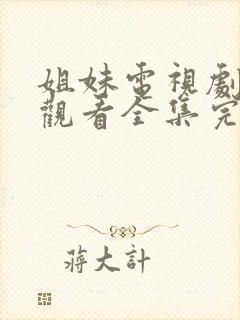 姐妹電視劇
觀看全集完
蔣大計